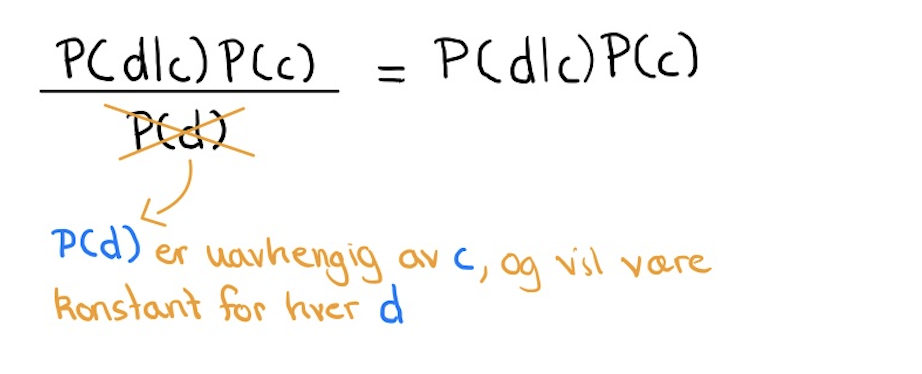 P(d|c)P(c) = P(d|c)P(c)
P(d)
P(d) er uavhengig av c, og vil være
konstant for hver d